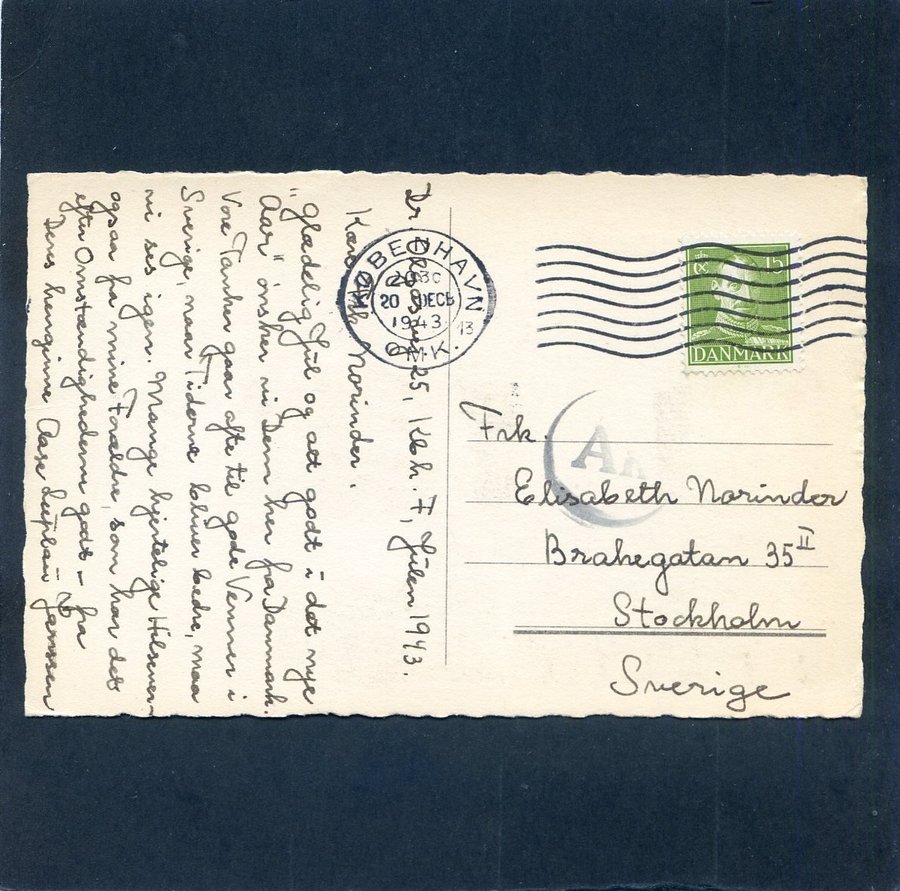 Kbh. F, Julen 1943.
Kære Norinder.
"Glædelig Jul og alt godt i det nye
Aar" ønsker vi Dem her fra Danmark.
Vore Tanker gaar ofte til gode Venner i
Sverige, naar Tiderne bliver bedre, maa
vi ses igen. Mange hjertelige Hilsener
ogsaa fra mine Forældre, som har det
efter Omstændighederne godt – fra
Deres hengivne Aase
KØBENHAVN
20 DECB
1943
OMK.
13
15
DANMARK
A
Frk.
Elisabeth Norinder
Brahegatan 35 II
Stockholm
Sverige